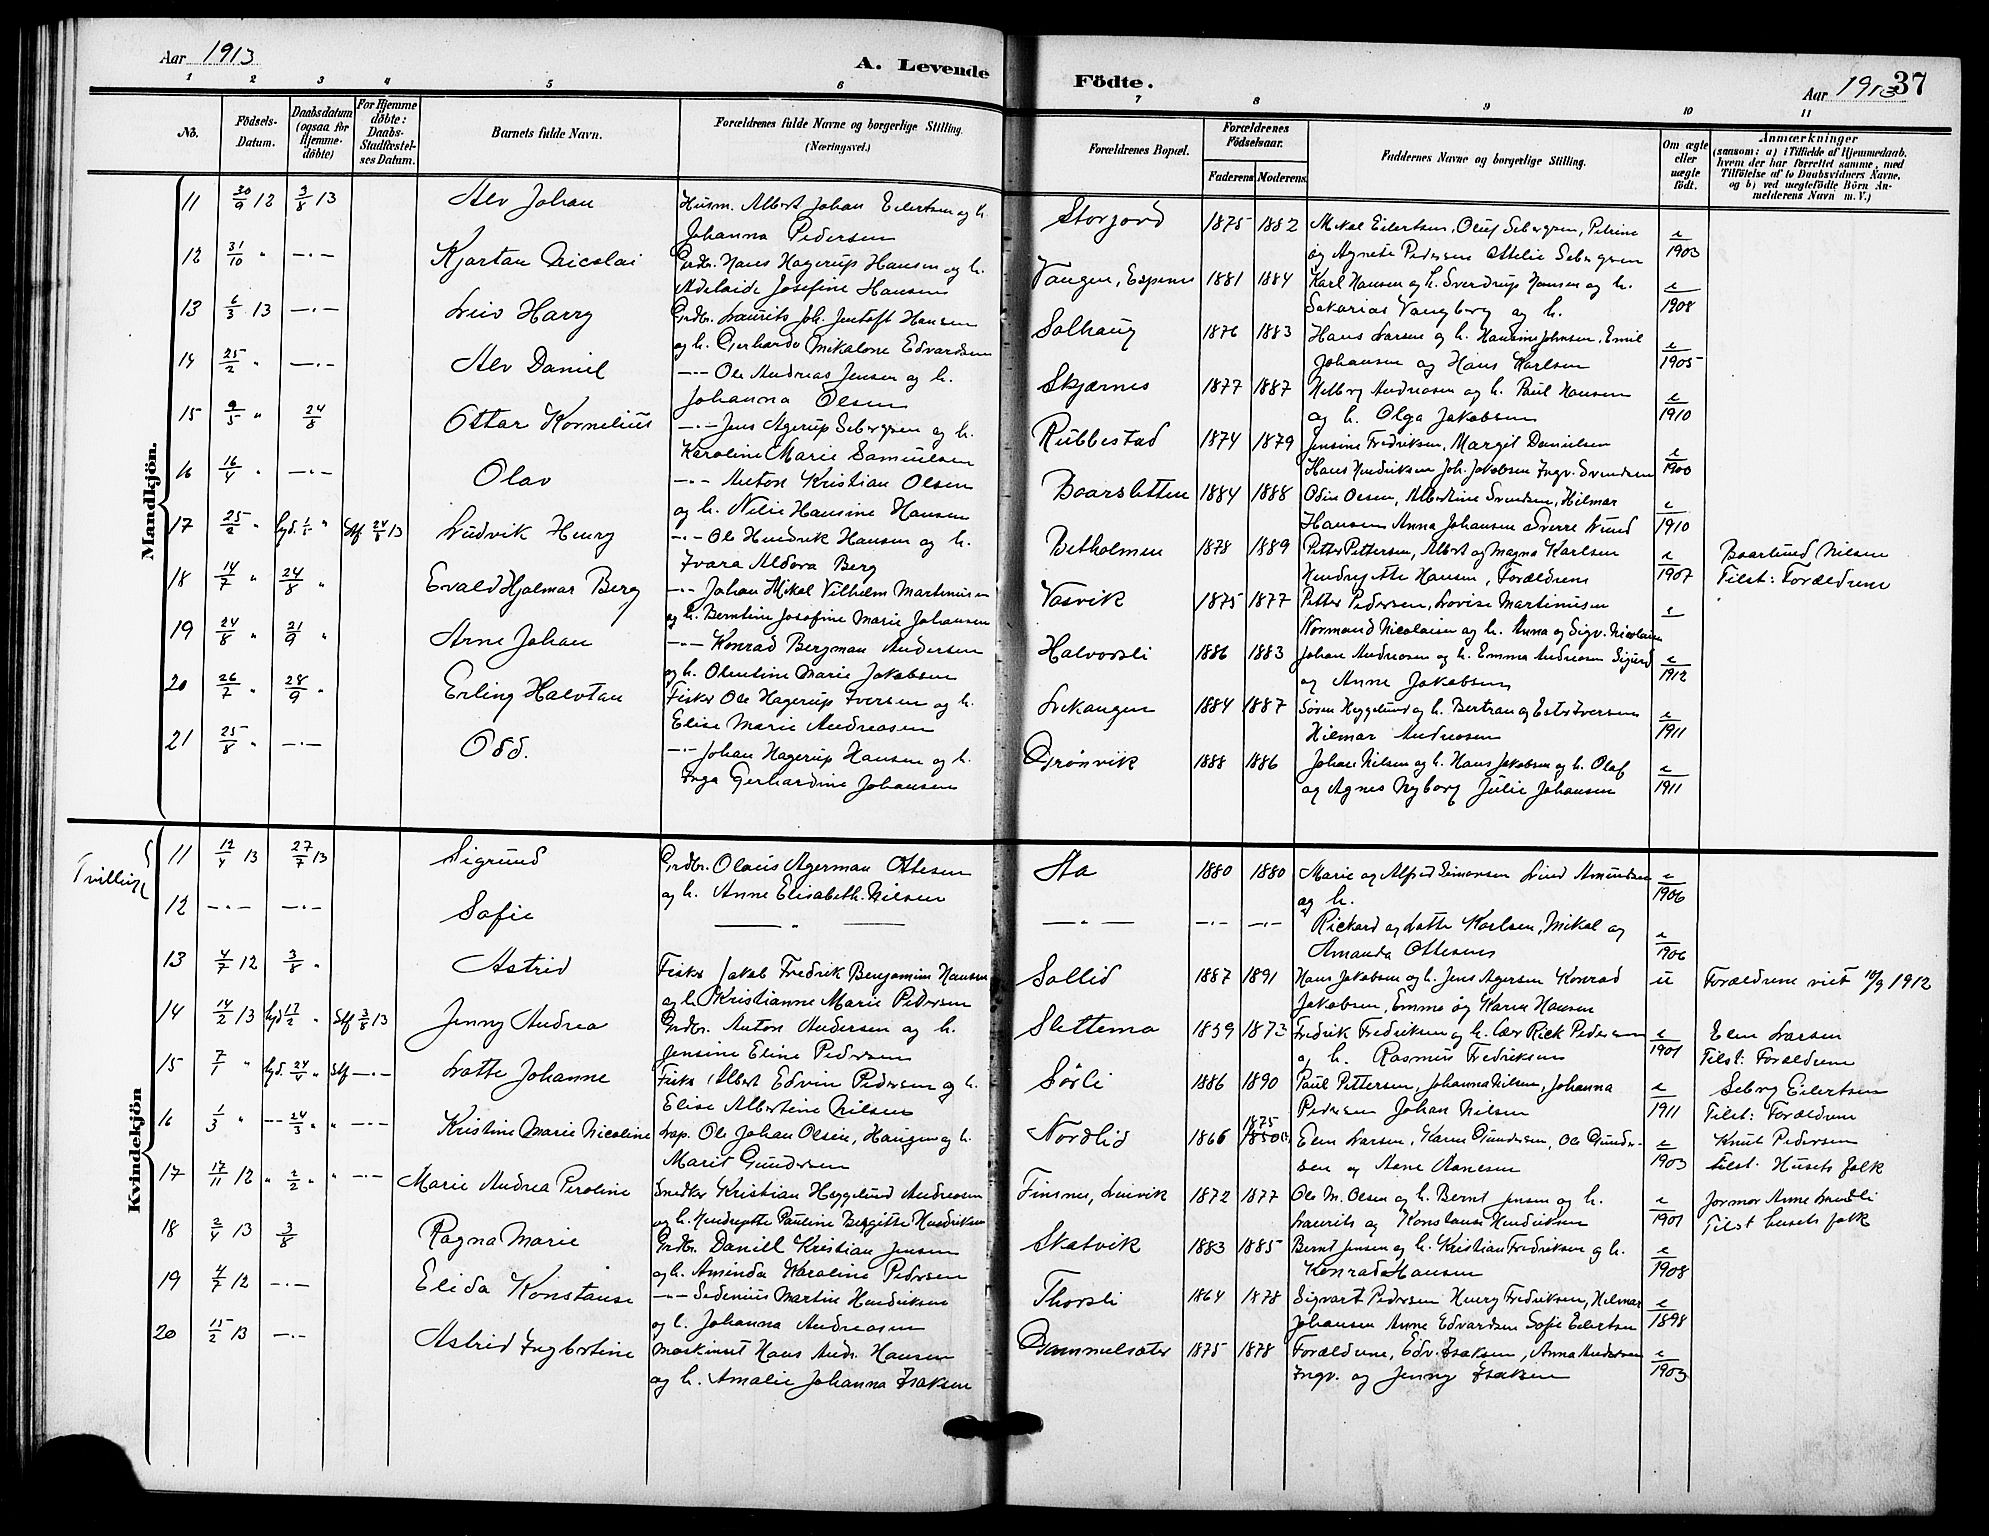 Aar 1913
A. Levende Födte.
Aar 1913 37
1 2 3 4 5 6 7 8 9 10 11
No.
Födsels-Datum.
Daabsdatum (ogsaa for Hjemme-döbte)
For Hjemme döbte: Daabs-Stadfæstelses Datum.
Barnets fulde Navn.
Forældrenes fulde Navne og borgerlige Stilling. (Næringsvei.)
Forældrenes Bopæl.
Forældrenes Födselsaar.
Faderens Moderens
Faddernes Navne og borgerlige Stilling.
Om ægte eller uægte födt.
Anmærkninger
(saasom: a) i Tilfælde af Hjemmedaab, hvem der har forrettet samme, med Tilföielse af to Daabsvidners Navne, og b) ved uægtefödte Börn Anmelderens Navn m. V.)
Mandkjön.
11 30/9 12 3/8 13 Alv Johan Husm. Albert Johan Eilertsen og h. Storjord 1875 1882 Mikal Eilertsen, Oluf Sebergsen, Petrine e/1903
Johanna Pedersen og Agnete Pedersen Ottelie Sebergsen
12 31/10 " —·— Kjartan Nicolai Grdbr. Hans Hagerup Hansen og h. Vangen, Espenes 1881 1884 Karl Hansen og h. Sverdrup Hansen og h. e/1908
Adelaide Josefine Hansen Sakarias Vangberg og h.
13 6/3 13 —·— Leiv Harry Grdbr. Laurits Joh. Jentoft Hansen Solhaug 1876 1883 Hans Larsen og h. Hansine Johnsen, Emil e/1905
og h. Gerharda Mikalone Edvardsen Johansen og Hans Karlsen
14 25/2 " —·— Alv Daniel —·— Ole Andreas Jensen og h. Skjærnes 1877 1887 Helberg Andreasen og h. Paul Hansen e/1910
Johanna Olsen og h. Olga Jakobsen
15 9/5 " 24/8 Ottar Kornelius —·— Jens Agerup Sebergsen og h. Rubbestad 1874 1879 Jensine Fredriksen, Margit Danielsen e/1900
Karoline Marie Samuelsen Hans Hendriksen Joh. Jakobsen Ingv. Svendsen
16 16/4 " —·— Olav —·— Anton Kristian Olsen Baarsletten 1884 1888 Odin Olsen, Albertine Svendsen, Hilmar e/1910
og h. Nelie Hansine Hansen Hansen Anna Johansen Sverre Lund
17 25/2 " hjd. 1/5 " Stf 24/8 13 Ludvik Henry —·— Ole Hendrik Hansen og h. Betholmen 1878 1889 Petter Pettersen, Albert og Magna Karlsen e/1907 Baarlund Nilsen
Ivara Aldora Berg Hendrejette Hansen, Forældrene Tilst: Forældrene
18 14/7 " 24/8 " Evald Hjalmar Berg —·— Johan Mikal Vilhelm Martinusen Vasvik 1875 1877 Petter Pedersen, Lovise Martinusen e
og h. Berntine Josefine Marie Johansen Normand Nicolaisen og h. Anna og Sigv. Nicolaisen
19 24/8 " 21/9 " Arne Johan —·— Konrad Bergman Andersen Halvorsli 1886 1883 Johan Andreasen og h. Emma Andreasen Sigurd e/1912
og h. Olentine Marie Jakobsen og Anne Jakobsen
20 26/7 " 28/9 " Erling Halvtan Fisker Ole Hagerup Iversen og h. Lekangen 1884 1887 Søren Heggelund og h. Bertran og Ester Iversen e/1911
Elise Marie Andreasen Hilmar Andreasen
21 25/8 " —·— Odd. —·— Johan Hagerup Hansen og h. Grønvik 1888 1886 Johan Nilsen og h. Hans Jakobsen og h. Olaf e/1911
Inga Gerhardine Johansen og Agnes Nyborg Julie Johansen
Kvindekjön
Tvillinge
11 12/4 13 27/7 13 Sigrund Grdbr. Olaus Agerman Ottesen Sta 1880 1880 Marie og Alfred Simonsen Lind Amundsen e/1906
og h. Anne Elisabeth Nilsen og h.
12 —·— —·— Sofie — " — — " — —·— —·— Rickard og Lotte Karlsen, Mikal og e/1906
Amanda Ottesen
13 4/7 12 3/8 " Astrid Fisker Jakob Fredrik Benjamin Hansen Sollid 1887 1891 Hans Jakobsen og h. Jens Agersen Konrad u Forældrene viet 10/9 1912
og h. Kristianne Marie Pedersen Jakobsen, Emma og Karen Hansen
14 14/2 13 hjd 17/2 " Stf 3/8 13 Jenny Andrea Grdbr. Anton Andersen og h. Slettemo 1859 1873 Fredrik Fredriksen og h. Lær Rick Pedersen e/1901 Elen Larsen
Jensine Eline Pedersen og h. Rasmus Fredriksen Tilst: Forældrene
15 7/1 " hjd. 24/4 " Stf —·— Lotte Johanne Fisker Albert Edvin Pedersen og h. Sørli 1886 1890 Paul Pettersen, Johanna Nilsen, Johanna e/1911 Seberg Eilertsen
Elise Albertine Nilsen Pedersen Johan Nilsen Tilst: Forældrene
16 1/3 " —·— 24/3 " " —·— Kristine Marie Nicoline Lap. Ole Johan Olsen, Haugen og h. Nordlid 1866 1875 Elen Larsen, Karen Gundersen, Ole Gunder- e/1903 Knut Pedersen
Marit Gundersen sen og Aane Aanesen Tilst: Husets folk
17 17/11 12 " 2/2 " " —·— Marie Andrea Peroline Snedker Kristian Heggelund Andreasen Finsnes, Leirvik 1872 1877 Ole M. Olsen og h. Bernt Jensen og h. e/1901 Jormor Anne Lundli
og h. Hendrejette Pauline Bergitte Hendriksen Laurits og Konstanse Hendriksen Tilst husets folk
18 2/4 13 3/8 Ragna Marie Grdbr. Daniel Kristian Jensen Skatvik 1883 1885 Bernt Jensen og h. Kristian Fredriksen og h. e/1908
og h. Aminda Karoline Pedersen Konrad Hansen
19 4/7 12 —·— Elida Konstanse —·— Sedenius Martin Hendriksen Thorsli 1864 1878 Sigvart Pedersen Henry Fredriksen, Hilmar e/1898
og h. Johanna Andreasen Johansen Anne Edvardsen Sofie Eilertsen
20 15/2 13 —·— Astrid Ingbertine Maskinist Hans Andr. Hansen Gammelsæter 1875 1878 Forældrene, Edv. Isaksen, Anna Andersen e/1903
og h. Amalie Johanna Isaksen Ingv. og Jenny Isaksen